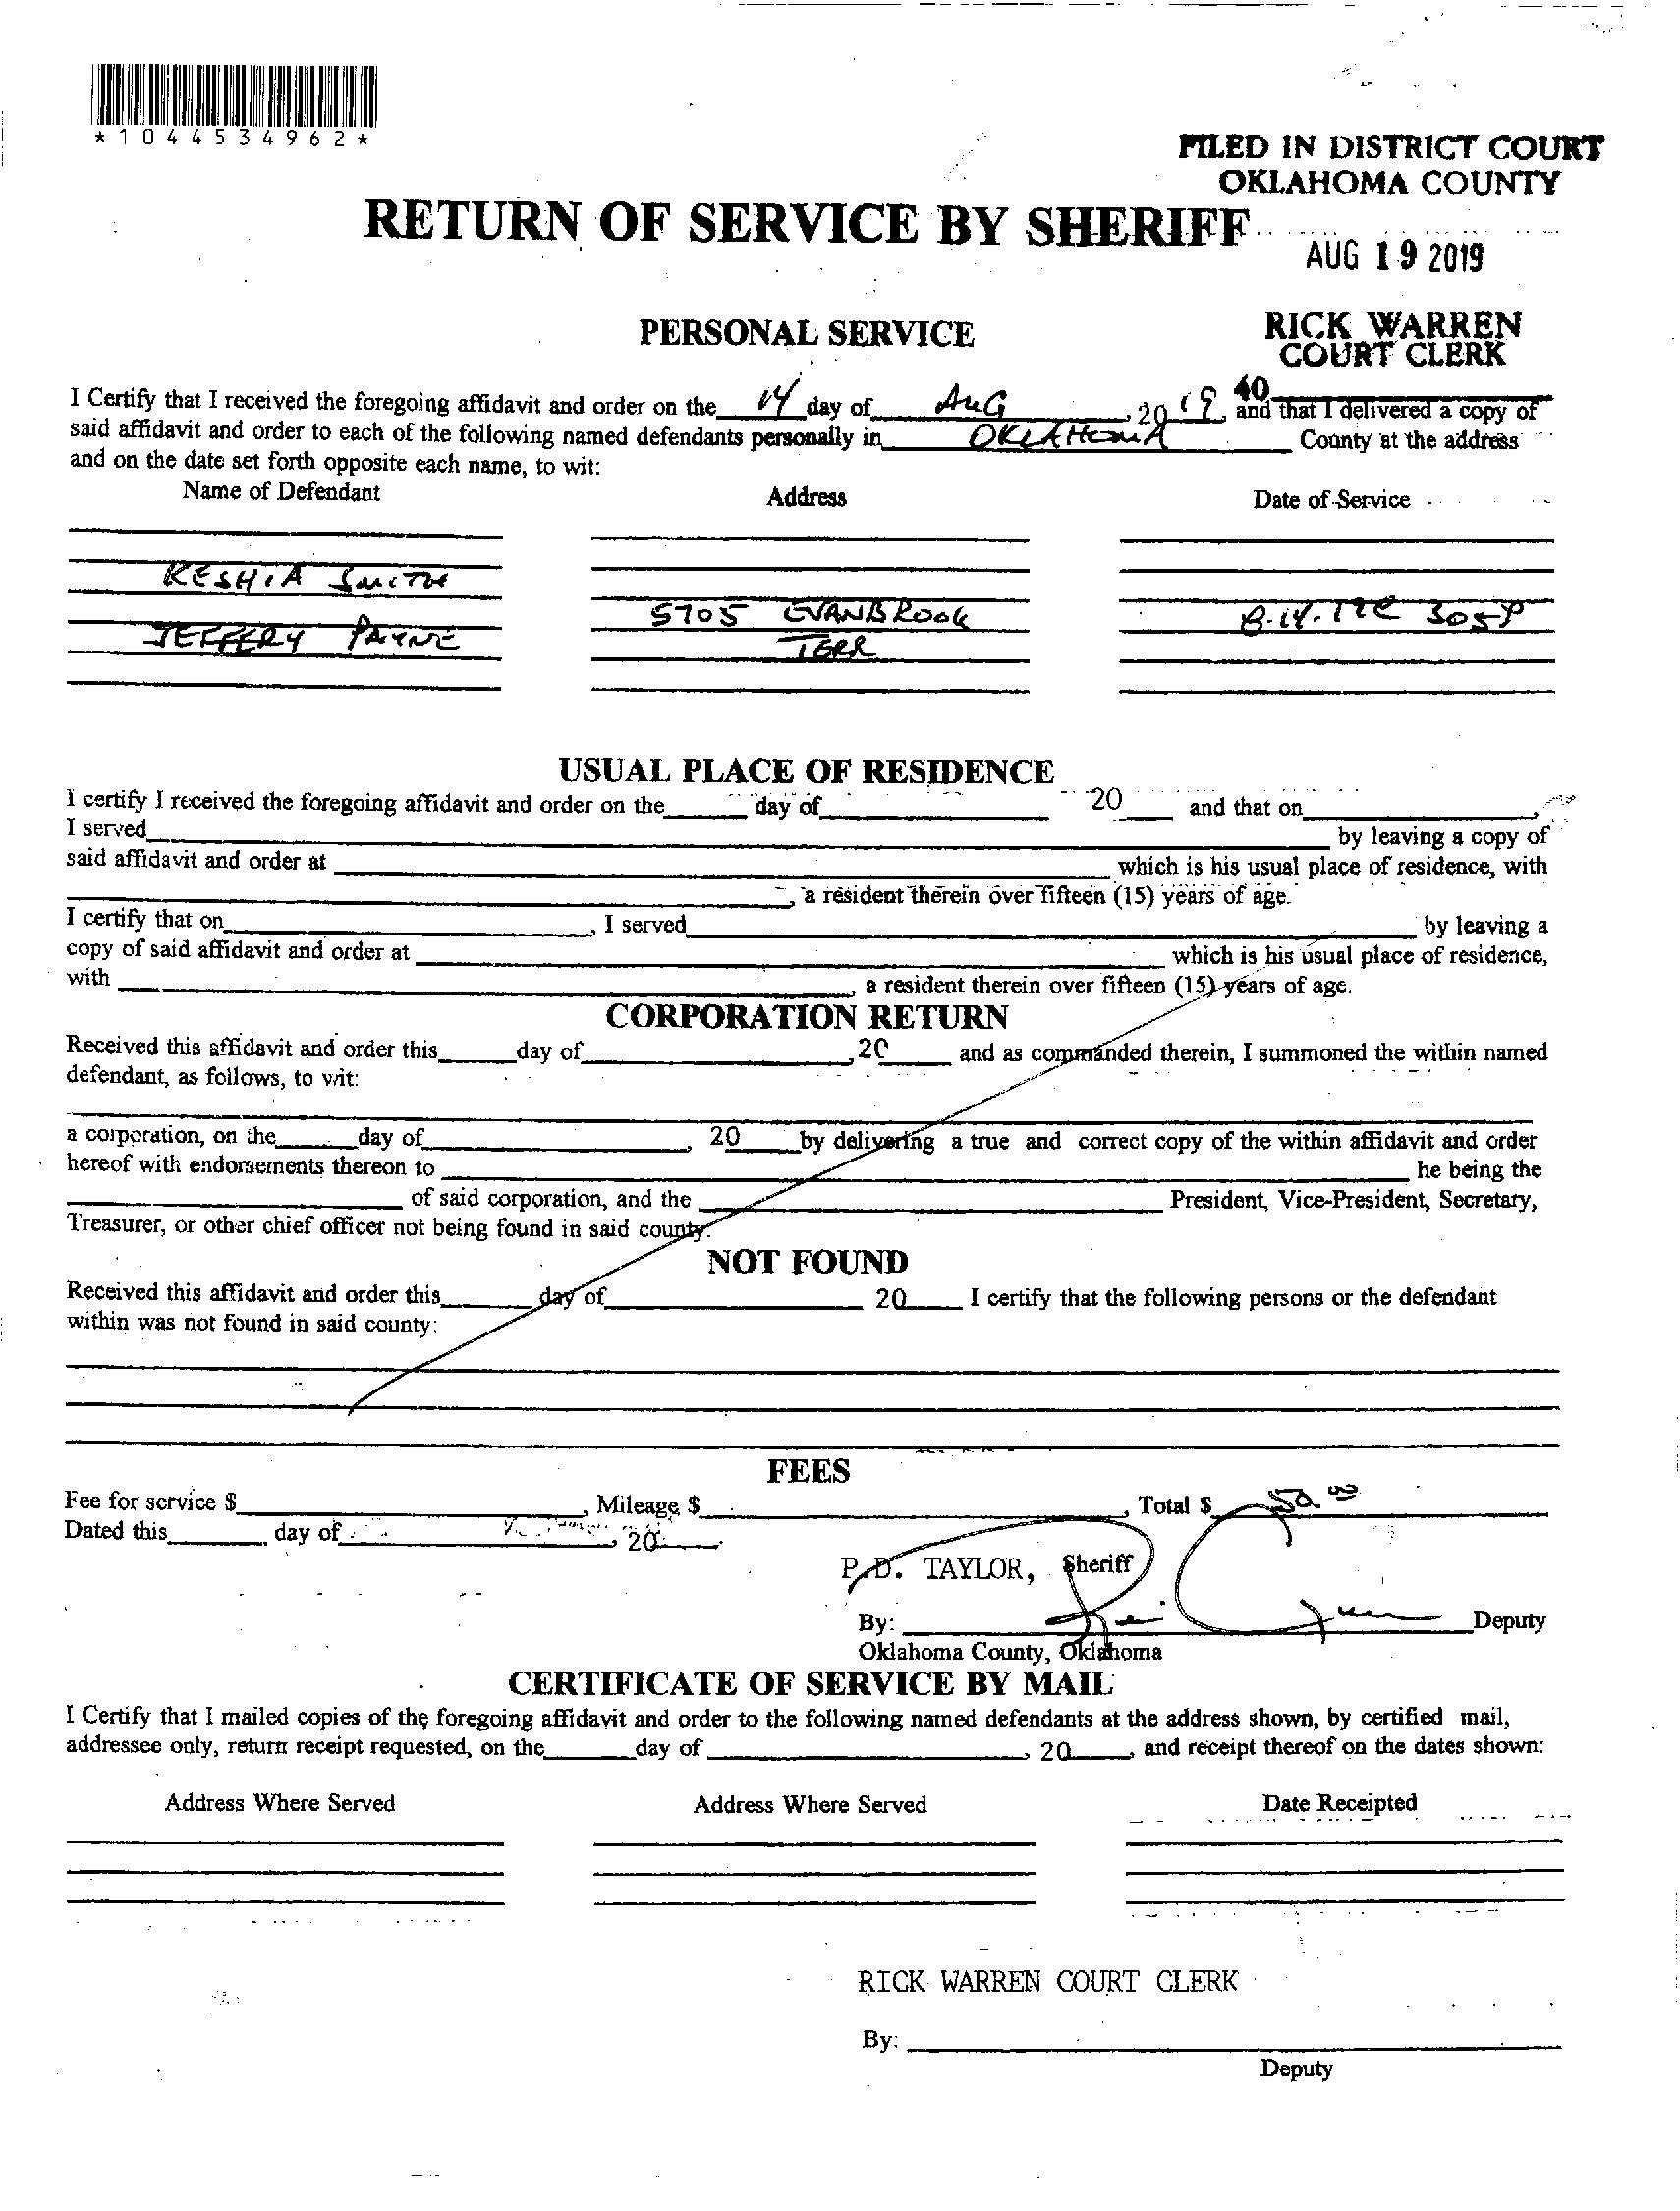 *1044534962*
FILED IN DISTRICT COURT
OKLAHOMA COUNTY
RETURN OF SERVICE BY SHERIFF
AUG 19 2019
PERSONAL SERVICE
RICK WARREN
COURT CLERK
40
I Certify that I received the foregoing affidavit and order on the 14 day of AUG, 2019, and that I delivered a copy of
said affidavit and order to each of the following named defendants personally in OKLAHOMA County at the address
and on the date set forth opposite each name, to wit:
Name of Defendant Address Date of Service
KESHIA SMITH
5705 EVANBROOK
JEFFERY PAYNE TERR
USUAL PLACE OF RESIDENCE
I certify I received the foregoing affidavit and order on the day of 20 and that on ,
I served by leaving a copy of
said affidavit and order at which is his usual place of residence, with
, a resident therein over fifteen (15) years of age.
I certify that on , I served by leaving a
copy of said affidavit and order at which is his usual place of residence,
with , a resident therein over fifteen (15) years of age.
CORPORATION RETURN
Received this affidavit and order this day of , 20 and as commanded therein, I summoned the within named
defendant, as follows, to wit:
a corporation, on the day of , 20 by delivering a true and correct copy of the within affidavit and order
hereof with endorsements thereon to he being the
of said corporation, and the President, Vice-President, Secretary,
Treasurer, or other chief officer not being found in said county.
NOT FOUND
Received this affidavit and order this day of 20 I certify that the following persons or the defendant
within was not found in said county:
FEES
Fee for service $ , Mileage $ , Total $ 50.00
Dated this , day of , 20 .
P.D. TAYLOR, Sheriff
By: Deputy
Oklahoma County, Oklahoma
CERTIFICATE OF SERVICE BY MAIL
I Certify that I mailed copies of the foregoing affidavit and order to the following named defendants at the address shown, by certified mail,
addressee only, return receipt requested, on the day of , 20 , and receipt thereof on the dates shown:
Address Where Served Address Where Served Date Receipted
RICK WARREN COURT CLERK
By:
Deputy